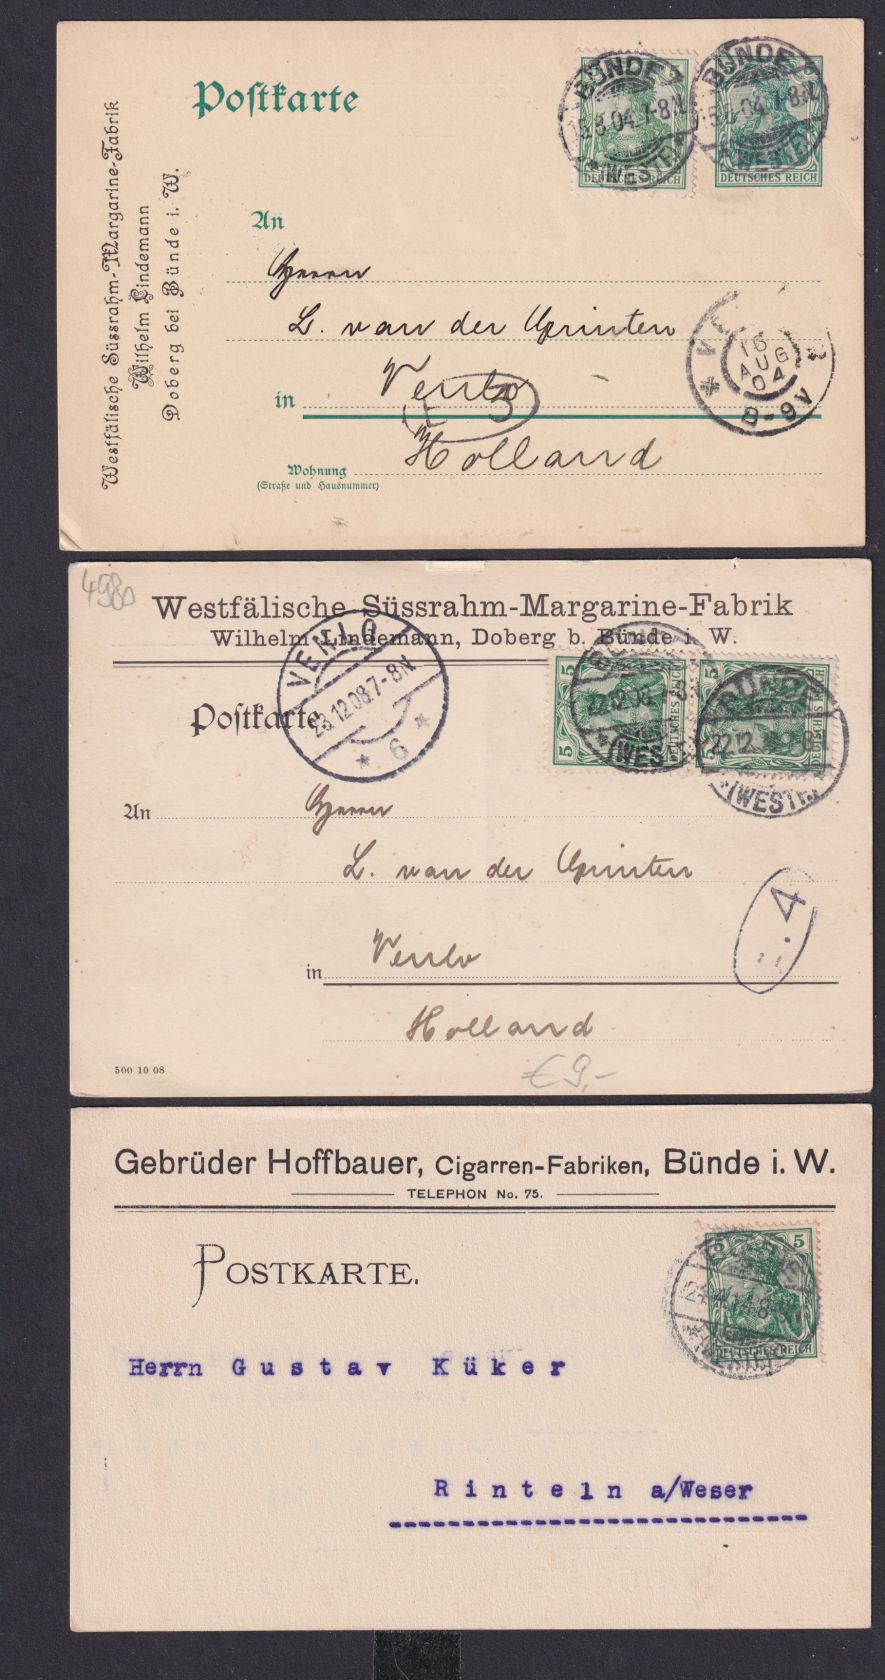 Westfälische Süssrahm-Margarine-Fabrik
Wilhelm Lindemann
Doberg bei Bünde i. W.
Postkarte
BÜNDE
15.8.04.7-8N
(WESTF)
DEUTSCHES REICH
BÜNDE
15.8.04.7-8N
(WESTF)
DEUTSCHES REICH
An
Herrn
L. van der Grinten
in Venlo
Holland
Wohnung
(Straße und Hausnummer)
3
16
AUG
04
8-9V
4980
Westfälische Süssrahm-Margarine-Fabrik
Wilhelm Lindemann, Doberg b. Bünde i. W.
Postkarte
VENLO
23.12.08.7-8N
6
5
5
DEUTSCHES REICH
(WESTF.)
5
DEUTSCHES REICH
(WESTF.)
An Herrn
L. van der Grinten
in Venlo
Holland
4
500 10 08
€ 9,-
Gebrüder Hoffbauer, Cigarren-Fabriken, Bünde i. W.
TELEPHON No. 75.
POSTKARTE.
5 5
DEUTSCHES REICH
Herrn Gustav Küker
Rinteln a/Weser